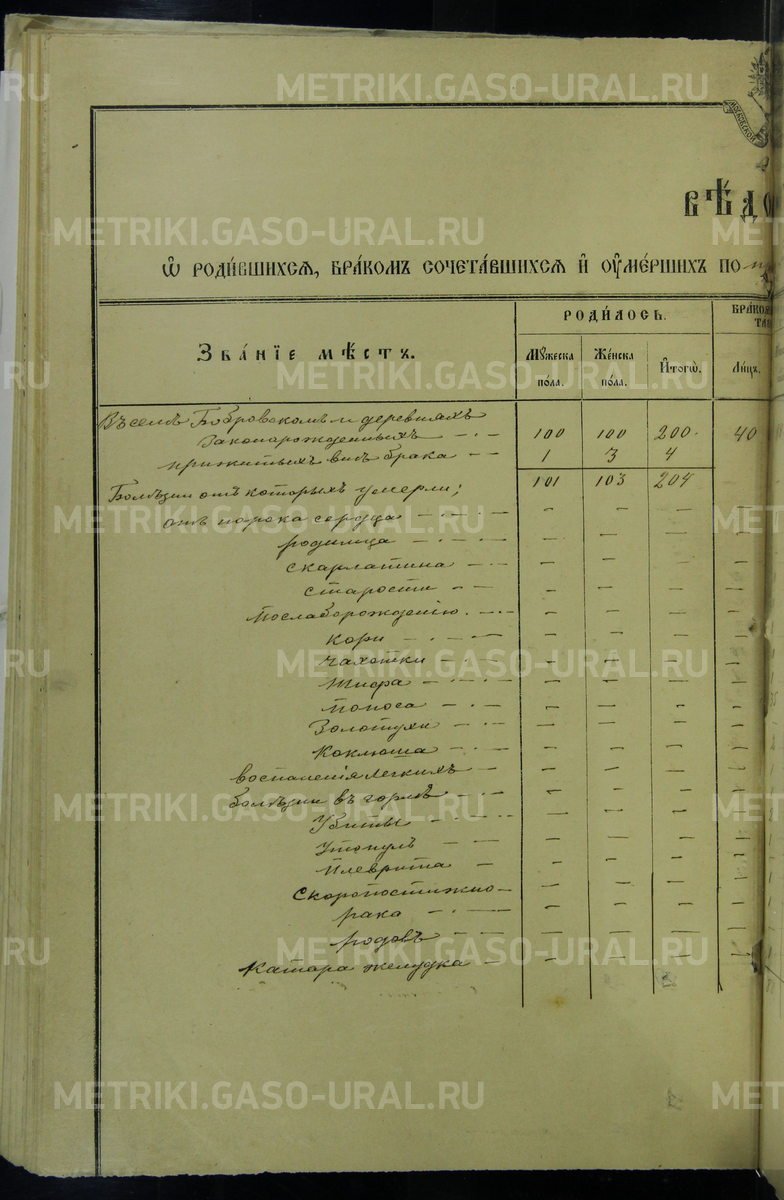 METRIKI.GASO-URAL.RU
МОСКОВСКОЙ
ВѢДО
Ѡ РОДИ́ВШИХСѦ, БРА́КОМЪ СОЧЕТА́ВШИХСѦ И҆ ОУ҆МЕ́РШИХЪ ПО
ЗВА́НІЕ МѢ́СТЪ.
РОДИ́ЛОСЬ.
БРАКО
ТА
Мꙋ́жеска по́ла.
Же́нска по́ла.
И҆тогѡ̀.
Ли́цъ.
Въ селѣ Бобровскомъ и деревняхъ
Законорожденныхъ – · – 100 100 200. 40
прижитыхъ внѣ брака – – 1 3 4
101 103 204
Болѣзни отъ которыхъ умерли;
отъ порока сердца – · – · – – – –
родимца – · – · – – – –
скарлатина – · – – – –
старости – · – – – –
послаборожденію. – · – – – –
кори – · – · – – – –
чахотки – · – – – –
тифа – · – · – – – –
поноса – · – – – –
Золотухи – · – – – –
Коклюша – · – – – –
воспаленія легкихъ – – – –
болѣзни въ горлѣ – · – – – –
Убиты – · – · – – – –
Утонулъ – · – – – –
плеврита – – – –
Скоропостижно – – – –
рака – · – – – –
родовъ – – – – –
Катара желудка – – – –